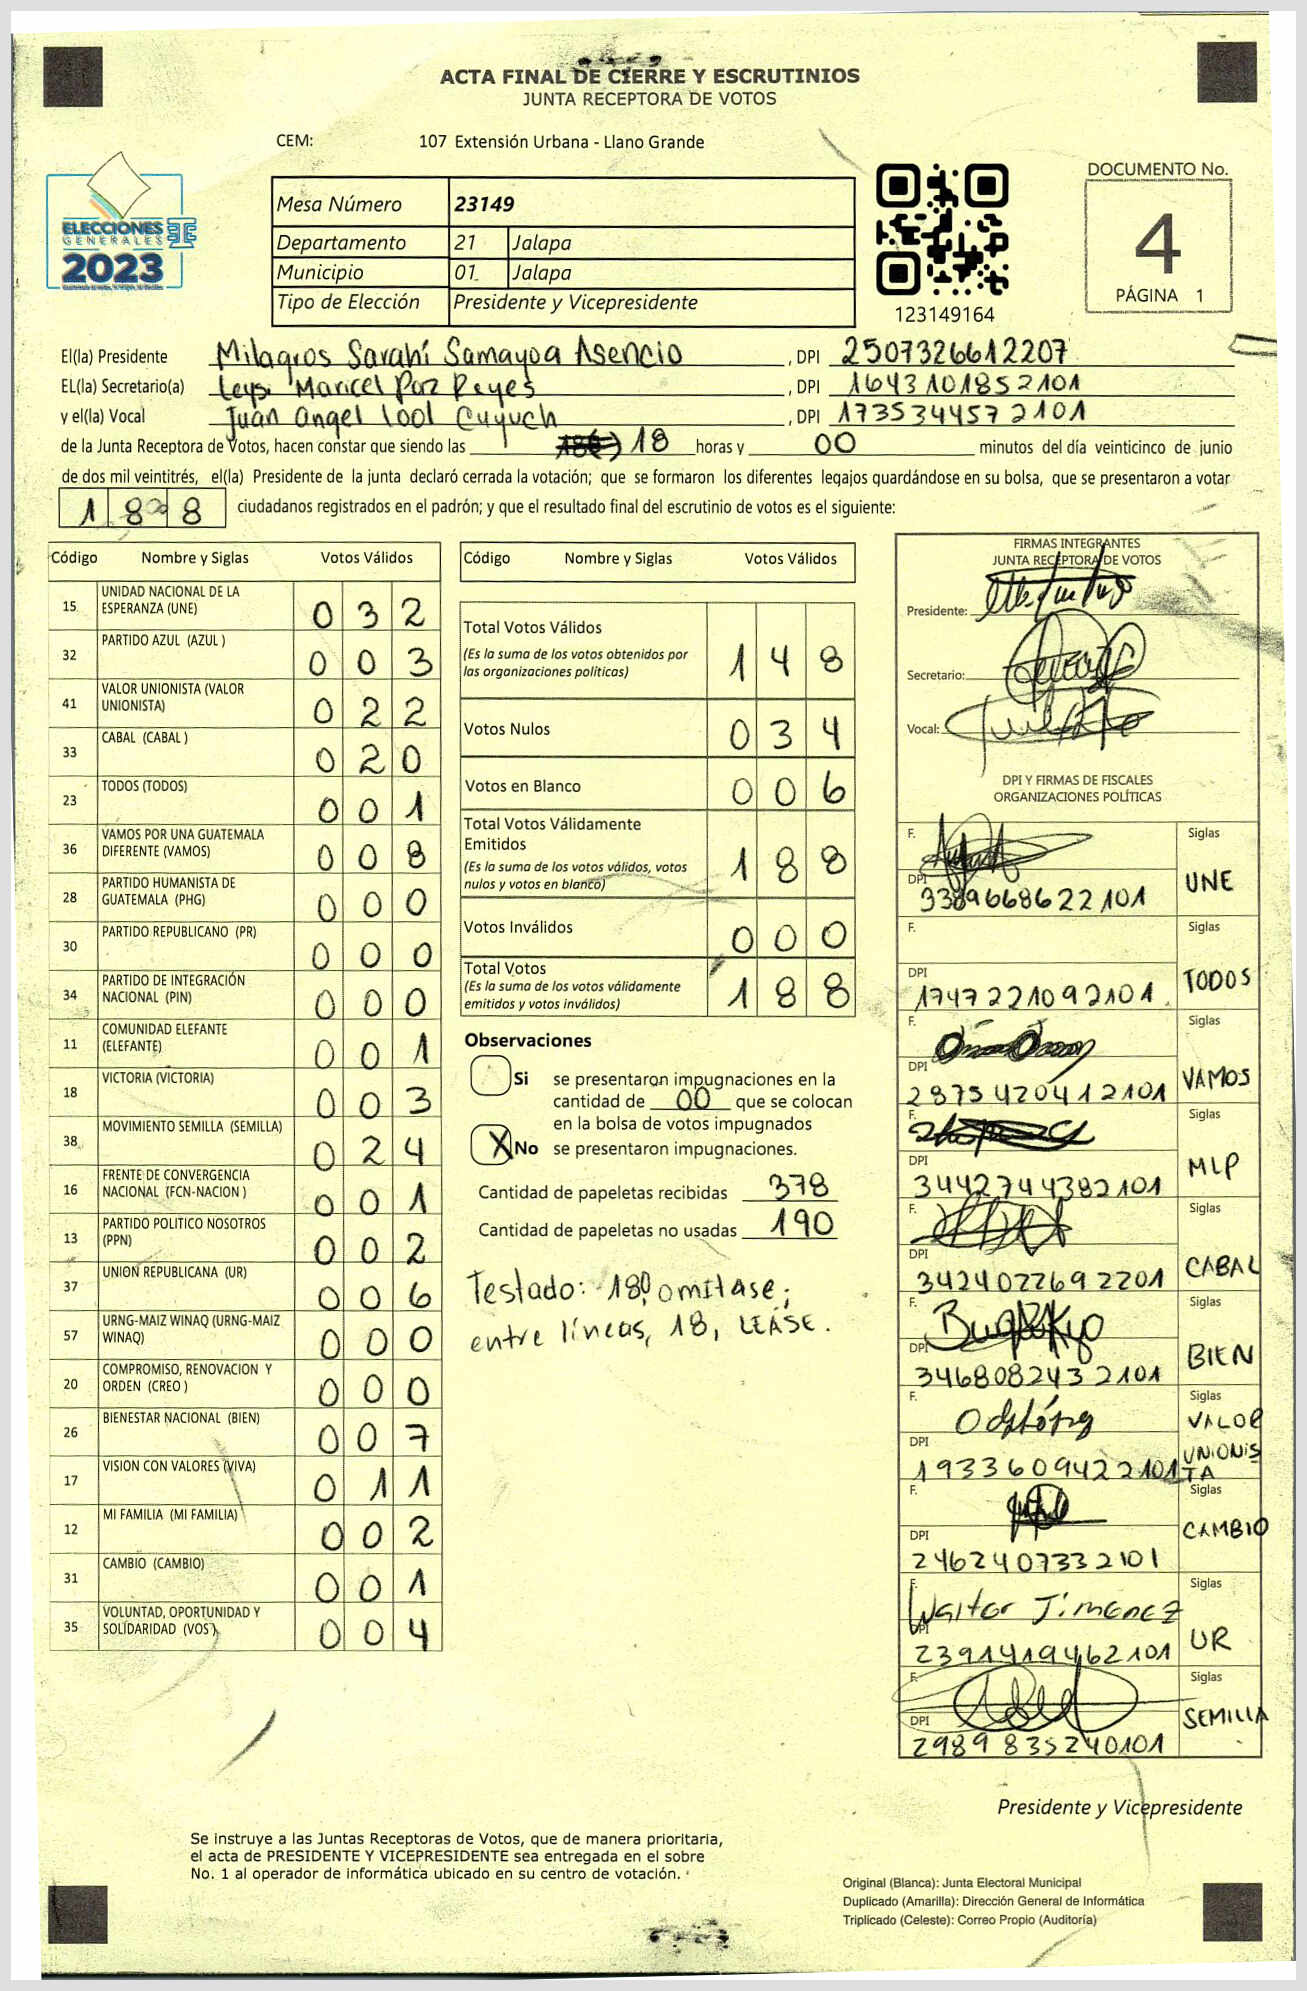 ACTA FINAL DE CIERRE Y ESCRUTINIOS
JUNTA RECEPTORA DE VOTOS
CEM: 107 Extensión Urbana - Llano Grande
ELECCIONES
GENERALES
2023
Mesa Número 23149
Departamento 21 Jalapa
Municipio 01 Jalapa
Tipo de Elección Presidente y Vicepresidente
123149164
DOCUMENTO No.
4
PÁGINA 1
El(la) Presidente Milagros Sarahí Samayoa Asencio, DPI 2507326612207
EL(la) Secretario(a) Leysi Maricel Paz Reyes, DPI 1643101852101
y el(la) Vocal Juan Angel Lool Cuyuch, DPI 1735344572101
de la Junta Receptora de Votos, hacen constar que siendo las 18 horas y 00 minutos del día veinticinco de junio
de dos mil veintitrés, el(la) Presidente de la junta declaró cerrada la votación; que se formaron los diferentes legajos guardándose en su bolsa, que se presentaron a votar
188 ciudadanos registrados en el padrón; y que el resultado final del escrutinio de votos es el siguiente:
Código Nombre y Siglas Votos Válidos
15 UNIDAD NACIONAL DE LA ESPERANZA (UNE) 032
32 PARTIDO AZUL (AZUL ) 003
41 VALOR UNIONISTA (VALOR UNIONISTA) 022
33 CABAL (CABAL ) 020
23 TODOS (TODOS) 001
36 VAMOS POR UNA GUATEMALA DIFERENTE (VAMOS) 008
28 PARTIDO HUMANISTA DE GUATEMALA (PHG) 000
30 PARTIDO REPUBLICANO (PR) 000
34 PARTIDO DE INTEGRACIÓN NACIONAL (PIN) 000
11 COMUNIDAD ELEFANTE (ELEFANTE) 001
18 VICTORIA (VICTORIA) 003
38 MOVIMIENTO SEMILLA (SEMILLA) 024
16 FRENTE DE CONVERGENCIA NACIONAL (FCN-NACION ) 001
13 PARTIDO POLITICO NOSOTROS (PPN) 002
37 UNION REPUBLICANA (UR) 006
57 URNG-MAIZ WINAQ (URNG-MAIZ WINAQ) 000
20 COMPROMISO, RENOVACION Y ORDEN (CREO ) 000
26 BIENESTAR NACIONAL (BIEN) 007
17 VISION CON VALORES (VIVA) 011
12 MI FAMILIA (MI FAMILIA) 002
31 CAMBIO (CAMBIO) 001
35 VOLUNTAD, OPORTUNIDAD Y SOLIDARIDAD (VOS ) 004
Código Nombre y Siglas Votos Válidos
Total Votos Válidos 148
(Es la suma de los votos obtenidos por
las organizaciones políticas)
Votos Nulos 034
Votos en Blanco 006
Total Votos Válidamente
Emitidos 188
(Es la suma de los votos válidos, votos
nulos y votos en blanco)
Votos Inválidos 000
Total Votos 188
(Es la suma de los votos válidamente
emitidos y votos inválidos)
Observaciones
Si se presentaron impugnaciones en la
cantidad de 00 que se colocan
en la bolsa de votos impugnados
X No se presentaron impugnaciones.
Cantidad de papeletas recibidas 378
Cantidad de papeletas no usadas 190
Testado: 180, omitase;
entre líneas, 18, LEASE.
FIRMAS INTEGRANTES
JUNTA RECEPTORA DE VOTOS
Presidente:
Secretario:
Vocal:
DPI Y FIRMAS DE FISCALES
ORGANIZACIONES POLÍTICAS
F. Siglas
DPI 3389668622101 UNE
F. Siglas
DPI 1747221092101 TODOS
F. Siglas
DPI 2875420412101 VAMOS
F. Siglas
DPI 3442744382101 MLP
F. Siglas
DPI 3424022692201 CABAL
F. Siglas
DPI 3468082432101 BIEN
F. Siglas
DPI 1933609422101 VALOR UNIONISTA
F. Siglas
DPI 2462407332101 CAMBIO
F. Walter Jimenez Siglas
DPI 2391419462101 UR
F. Siglas
DPI 2989835240101 SEMILLA
Presidente y Vicepresidente
Se instruye a las Juntas Receptoras de Votos, que de manera prioritaria,
el acta de PRESIDENTE Y VICEPRESIDENTE sea entregada en el sobre
No. 1 al operador de informática ubicado en su centro de votación.
Original (Blanca): Junta Electoral Municipal
Duplicado (Amarilla): Dirección General de Informática
Triplicado (Celeste): Correo Propio (Auditoría)